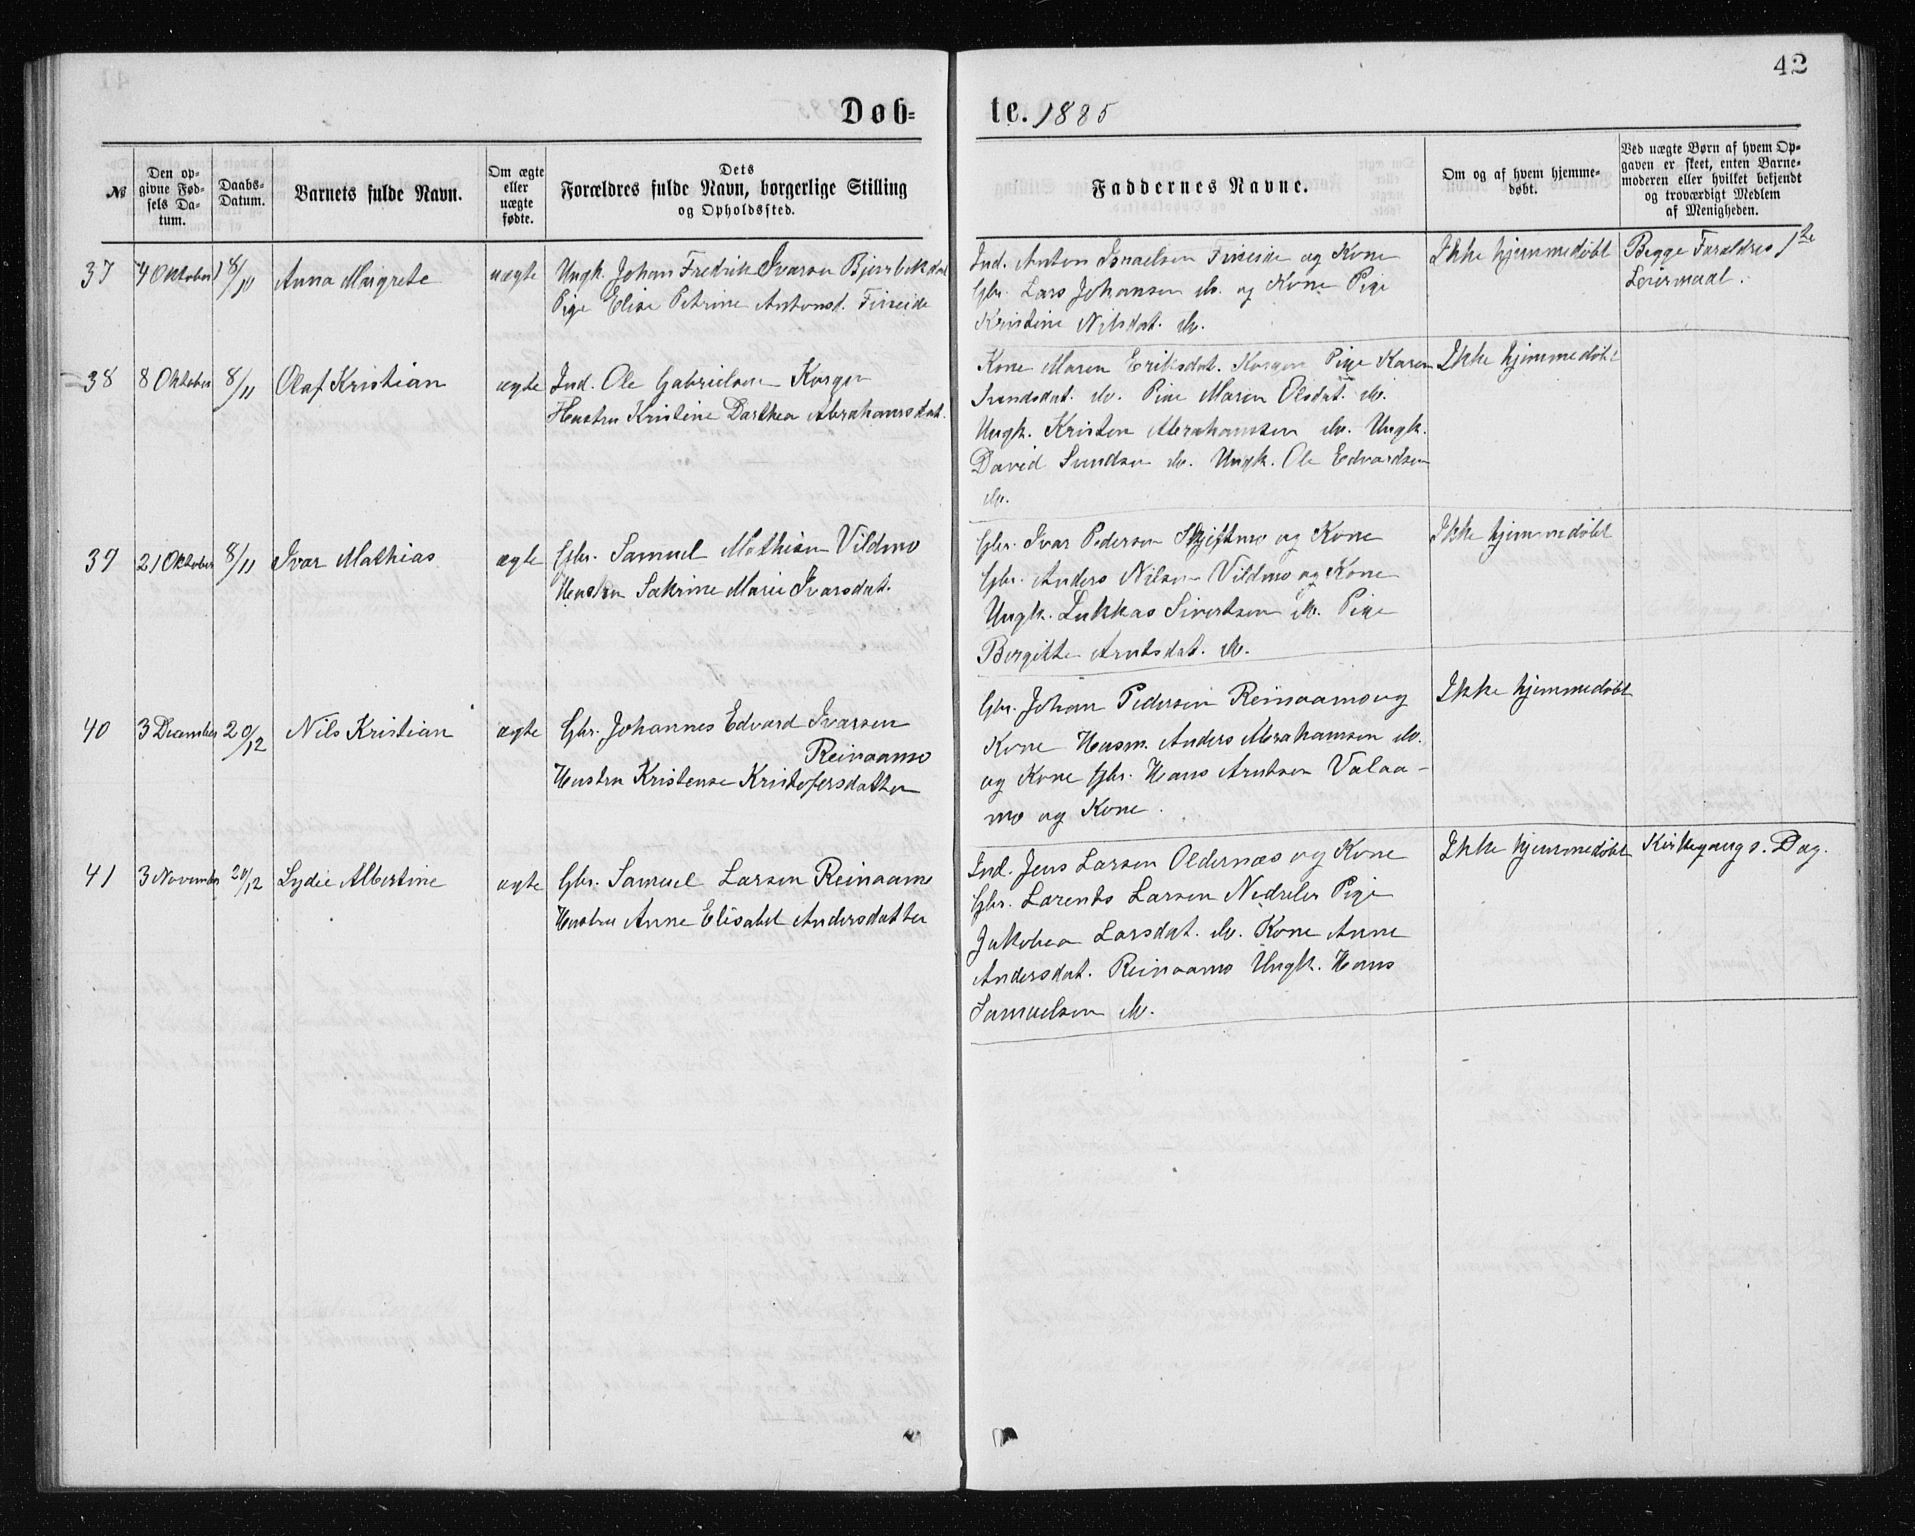 42
Døb= te. 1885
№
Den op-
givne Fød-
sels Da-
tum.
Daabs-
Datum.
Barnets fulde Navn.
Om ægte
eller
uægte
fødte.
Dets
Forældres fulde Navn, borgerlige Stilling
og Opholdssted.
Faddernes Navne.
Om og af hvem hjemme-
døbt.
Ved uægte Børn af hvem Op-
gaven er skeet, enten Barne-
moderen eller hvilket bekjendt
og troværdigt Medlem
af Menigheden.
37 4 Oktober 18/10 Anna Margrete uægte Ungk. Johan Fredrik Ivarsen
Pige Elise Petrine Antonsd. Finneide
Ind. Anton Israelsen Finneide og Kone
Gbr. Lars Johansen do. og Kone Pige
Kristine Nilsdat. do.
Ikke hjemmedøbt
Begge Forældres 1te
Leiermaal.
38 8 Oktober 8/11 Olaf Kristian ægte Ind. Ole Gabrielsen Korgen
Hustru Kristine Darthea Abrahamsdat.
Kone Maren Eriksdat. Korgen Pige Karen
do. Pige Maren Olsdat. do.
Ungk. Kristen Abrahamsen do. Ungk.
David do. Ungk. Ole Edvardsen
do.
Ikke hjemmedøbt
39 21 Oktober 8/11 Ivar Mathias ægte Gbr. Samuel Mathisen Vildmo
Hustru Sakrine Marie Ivarsdat.
Gbr. Ivar Pedersen Skjeftmo og Kone
Gbr. Anders Nilsen Vildmo og Kone
Ungk. Lukkas Sivertsen do. Pige
Birgitte Arntsdat. do.
Ikke hjemmedøbt
40 3 December 20/12 Nils Kristian ægte Gbr. Johannes Edvard Ivarsen
Reinaamo
Hustru Kristense Kristofersdatter
Gbr. Johan Pedersen Reinaamo og
Kone Husm. Anders Abrahamsen do.
og Kone Gbr. Hans Arntsen Valaa-
mo og Kone.
Ikke hjemmedøbt
41 3 November 20/12 Lydie Albertine ægte Gbr. Samuel Larsen Reinaamo
Hustru Anne Elisabet Andersdatter
Ind. Jens Larsen Oldernæs og Kone
Gbr. Larents Larsen Nedreler Pige
Jakobea Larsdat. do. Kone Anne
Andersdat. Reinaamo Ungk. Hans
Samuelsen do.
Ikke hjemmedøbt
Kirkegangs. Dag.